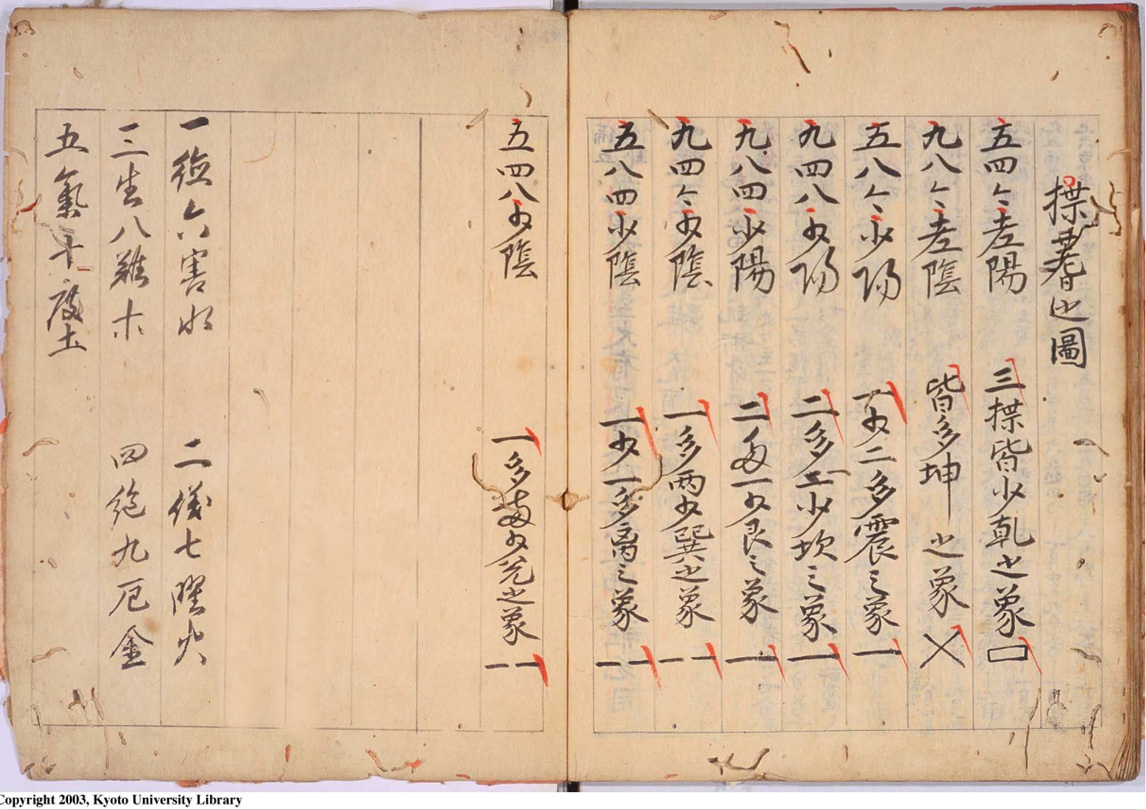 揲蓍之圖
五四々老陽 三揲皆少乾之象 □
九八々老陰 皆多坤之象 ×
五八々少陽 一少二多震之象 一
九四八少陽 二多一少坎之象 一
九八四少陽 二多一少艮之象 一
九四々少陰 一多両少巽之象 一一
五八四少陰 一少一多离之象 一一
五四八少陰 一多両少兌之象 一一
一徳六害水 二儀七曜火
三生八難木 四絶九厄金
五氣十度土
Copyright 2003, Kyoto University Library